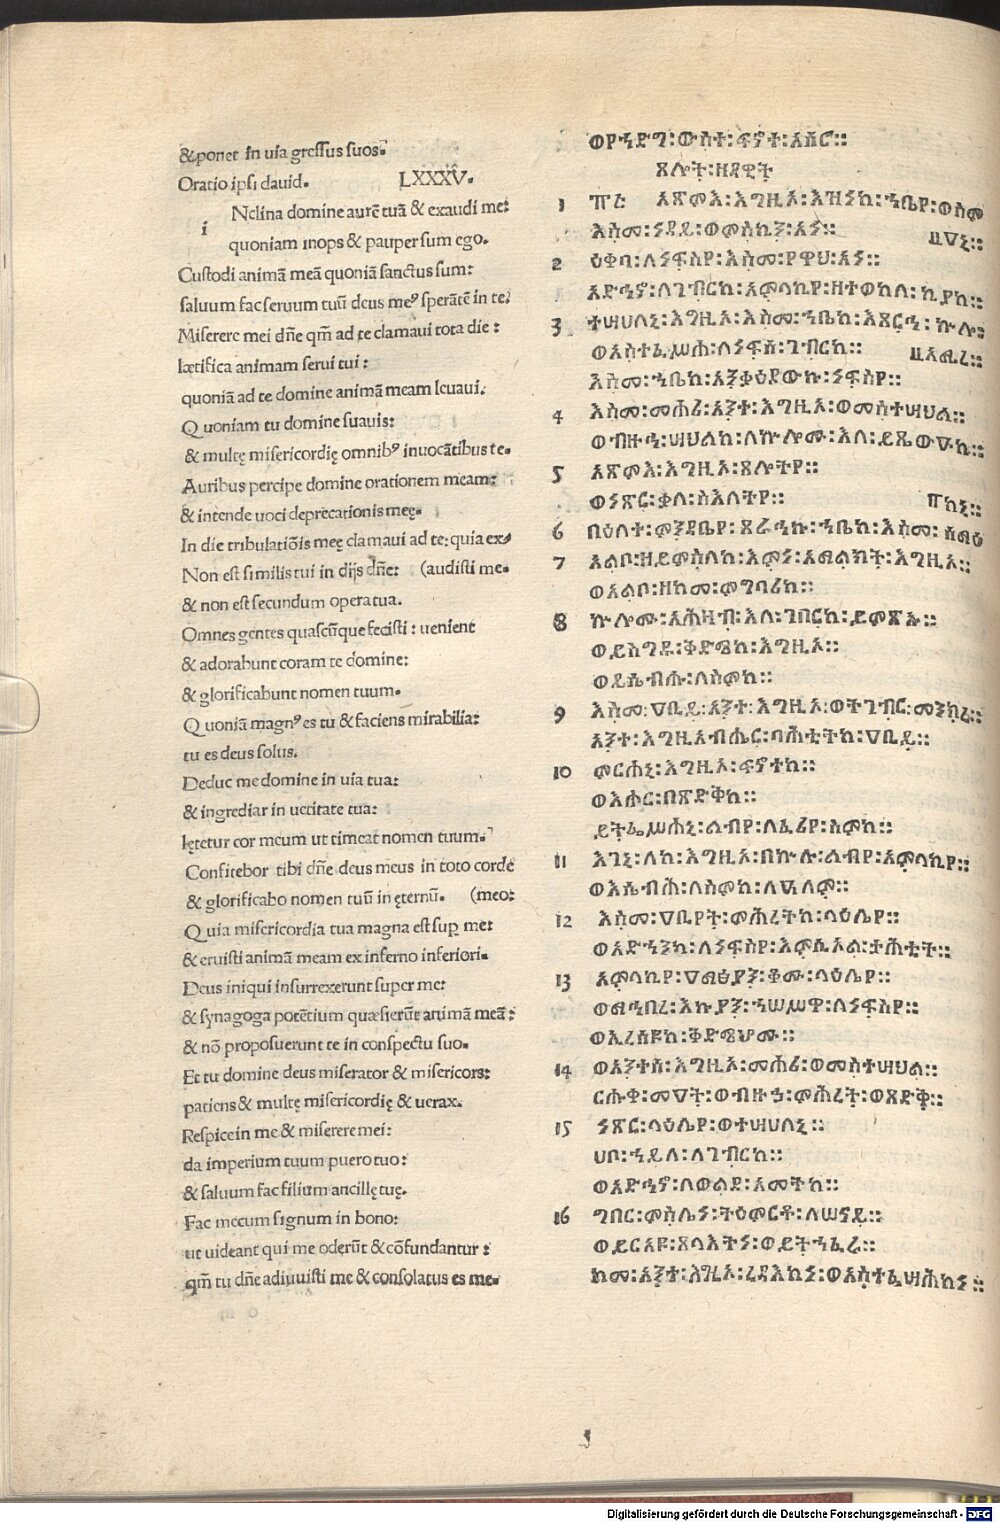 &ponet in uia gressus suos.
Oratio ipsi dauid. LXXXV.
i Nclina domine aurē tuā & exaudi me:
quoniam inops & pauper sum ego.
Custodi animā meā quoniā sanctus sum:
saluum fac seruum tuū deus meꝰ sperātē in te.
Miserere mei dñe qm̄ ad te clamaui tota die:
lætifica animam serui tui:
quoniā ad te domine animā meam leuaui.
Quoniam tu domine suauis:
& multę misericordię omnibꝰ inuocātibus te.
Auribus percipe domine orationem meam:
& intende uoci deprecationis meę.
In die tribulatiōis meę clamaui ad te: quia ex/
Non est similis tui in dijs dñe: (audisti me.
& non est secundum opera tua.
Omnes gentes quascūque fecisti: uenient
& adorabunt coram te domine:
& glorificabunt nomen tuum.
Quoniā magnꝰ es tu & faciens mirabilia:
tu es deus solus.
Deduc me domine in uia tua:
& ingrediar in ueritate tua:
lętetur cor meum ut timeat nomen tuum.
Confitebor tibi dñe deus meus in toto corde
& glorificabo nomen tuū in ęternū. (meo:
Quia misericordia tua magna est sup me:
& eruisti animā meam ex inferno inferiori.
Deus iniqui insurrexerunt super me:
& synagoga potētium quæsierūt animā meā:
& nō proposuerunt te in conspectu suo.
Et tu domine deus miserator & misericors:
patiens & multę misericordię & uerax.
Respice in me & miserere mei:
da imperium tuum puero tuo:
& saluum fac filium ancillę tuę.
Fac mecum signum in bono:
ut uideant qui me oderūt & cōfundantur:
qm̄ tu dñe adiuuisti me & consolatus es me.
ወየኀድግ፡ውስተ፡ፍኖተ፡አሰር።
ጸሎት፡ዘዳዊት
1 ፹፭ አጽምእ፡እግዚአ፡እዝነከ፡ኀቤየ፡ወስም
እስመ፡ነዳይ፡ወምስኪን፡አነ። ዐኒ።
2 ዕቀባ፡ለነፍስየ፡እስመ፡የዋህ፡አነ።
አድኅኖ፡ለገብርከ፡አምላኪየ፡ዘተወከለ፡ኪያከ።
3 ተሣሀለኒ፡እግዚአ፡እስመ፡ኀቤከ፡እጸርኅ፡ኵሎ፡
ወአስተፌሥሖ፡ለነፍሰ፡ገብርከ። አሚረ።
እስመ፡ኀቤከ፡አንቃዕደውኩ፡ነፍስየ።
4 እስመ፡መሐሪ፡አንተ፡እግዚአ፡ወመስተሣህል።
ወብዙኅ፡ሣህልከ፡ለኵሎሙ፡እለ፡ይጼውዑከ።
5 አጽምእ፡እግዚአ፡ጸሎትየ።
ወነጽር፡ቃለ፡ስእለትየ። ከኒ።
6 በዕለተ፡ምንዳቤየ፡ጸራኅኩ፡ኀቤከ፡እስመ፡ሰማዕ
7 አልቦ፡ዘይመስለከ፡እምነ፡አማልክት፡እግዚአ።
ወአልቦ፡ዘከመ፡ምግባሪከ።
8 ኵሎሙ፡አሕዛብ፡እለ፡ገበርከ፡ይመጽኡ።
ወይሰግዱ፡ቅድሜከ፡እግዚአ።
ወይሴብሑ፡ለስምከ።
9 እስመ፡ዐቢይ፡አንተ፡እግዚአ፡ወትገብር፡መንክረ።
አንተ፡እግዚአብሔር፡ባሕቲትከ፡ዐቢይ።
10 ምርሐኒ፡እግዚአ፡ፍኖተከ።
ወእሖር፡በጽድቅከ።
ይትፌሥሐኒ፡ልብየ፡ለፈሪየ፡ስምከ።
11 እገኒ፡ለከ፡እግዚአ፡በኵሉ፡ልብየ፡አምላኪየ።
ወእሴብሕ፡ለስምከ፡ለዓለም።
12 እስመ፡ዐቢየት፡ምሕረትከ፡ላዕሌየ።
ወአድኀንካ፡ለነፍስየ፡እምሲኦል፡ታሕቲት።
13 አምላኪየ፡ዐማፅያን፡ቆሙ፡ላዕሌየ።
ወማኅበረ፡እኩያን፡ኀሠሥዋ፡ለነፍስየ።
ወኢረሰዩከ፡ቅድሜሆሙ።
14 ወአንተሰ፡እግዚአ፡መሐሪ፡ወመስተሣህል።
ርሑቀ፡መዐት፡ወብዙኅ፡ምሕረት፡ወጻድቅ።
15 ነጽር፡ላዕሌየ፡ወተሣሀለኒ።
ሀቦ፡ኀይለ፡ለገብርከ።
ወአድኅኖ፡ለወልደ፡አመትከ።
16 ግበር፡ምስሌነ፡ትዕምርተ፡ለሠናይ።
ወይርአዩ፡ጸላእትነ፡ወይትኀፈሩ።
ከመ፡አንተ፡እግዚአ፡ረዳእከነ፡ወአስተፌሣሕከነ።
Digitalisierung gefördert durch die Deutsche Forschungsgemeinschaft - DFG